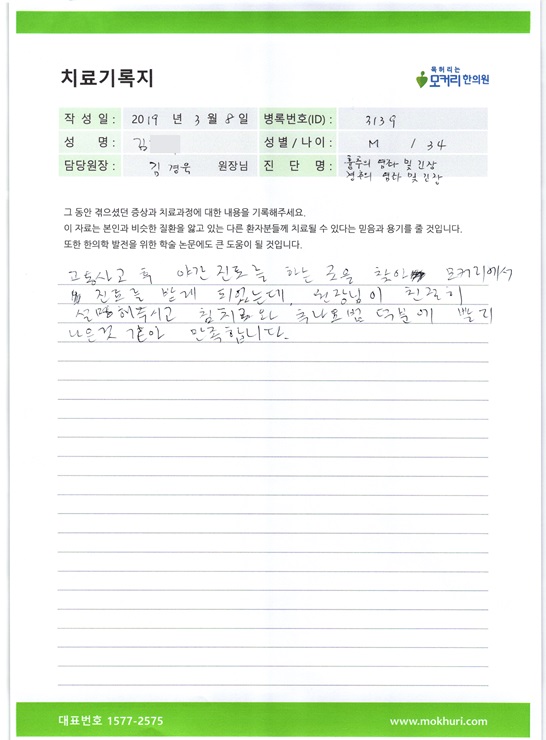 치료기록지
목허리는
모커리한의원
작 성 일 : 2019 년 3 월 8 일 병록번호(ID) : 3139
성 명 : 김 성별 / 나이 : M / 34
담당원장 : 김경욱 원장님 진 단 명 : 흉추의 염좌 및 긴장
경추의 염좌 및 긴장
그 동안 겪으셨던 증상과 치료과정에 대한 내용을 기록해주세요.
이 자료는 본인과 비슷한 질환을 앓고 있는 다른 환자분들께 치료될 수 있다는 믿음과 용기를 줄 것입니다.
또한 한의학 발전을 위한 학술 논문에도 큰 도움이 될 것입니다.
교통사고 후 야간진료를 하는 곳을 찾아 모커리에서
진료를 받게 되었는데, 원장님이 친절히
설명해주시고 침치료와 추나요법 덕분에 빨리
나은것 같아 만족합니다.
대표번호 1577-2575
www.mokhuri.com